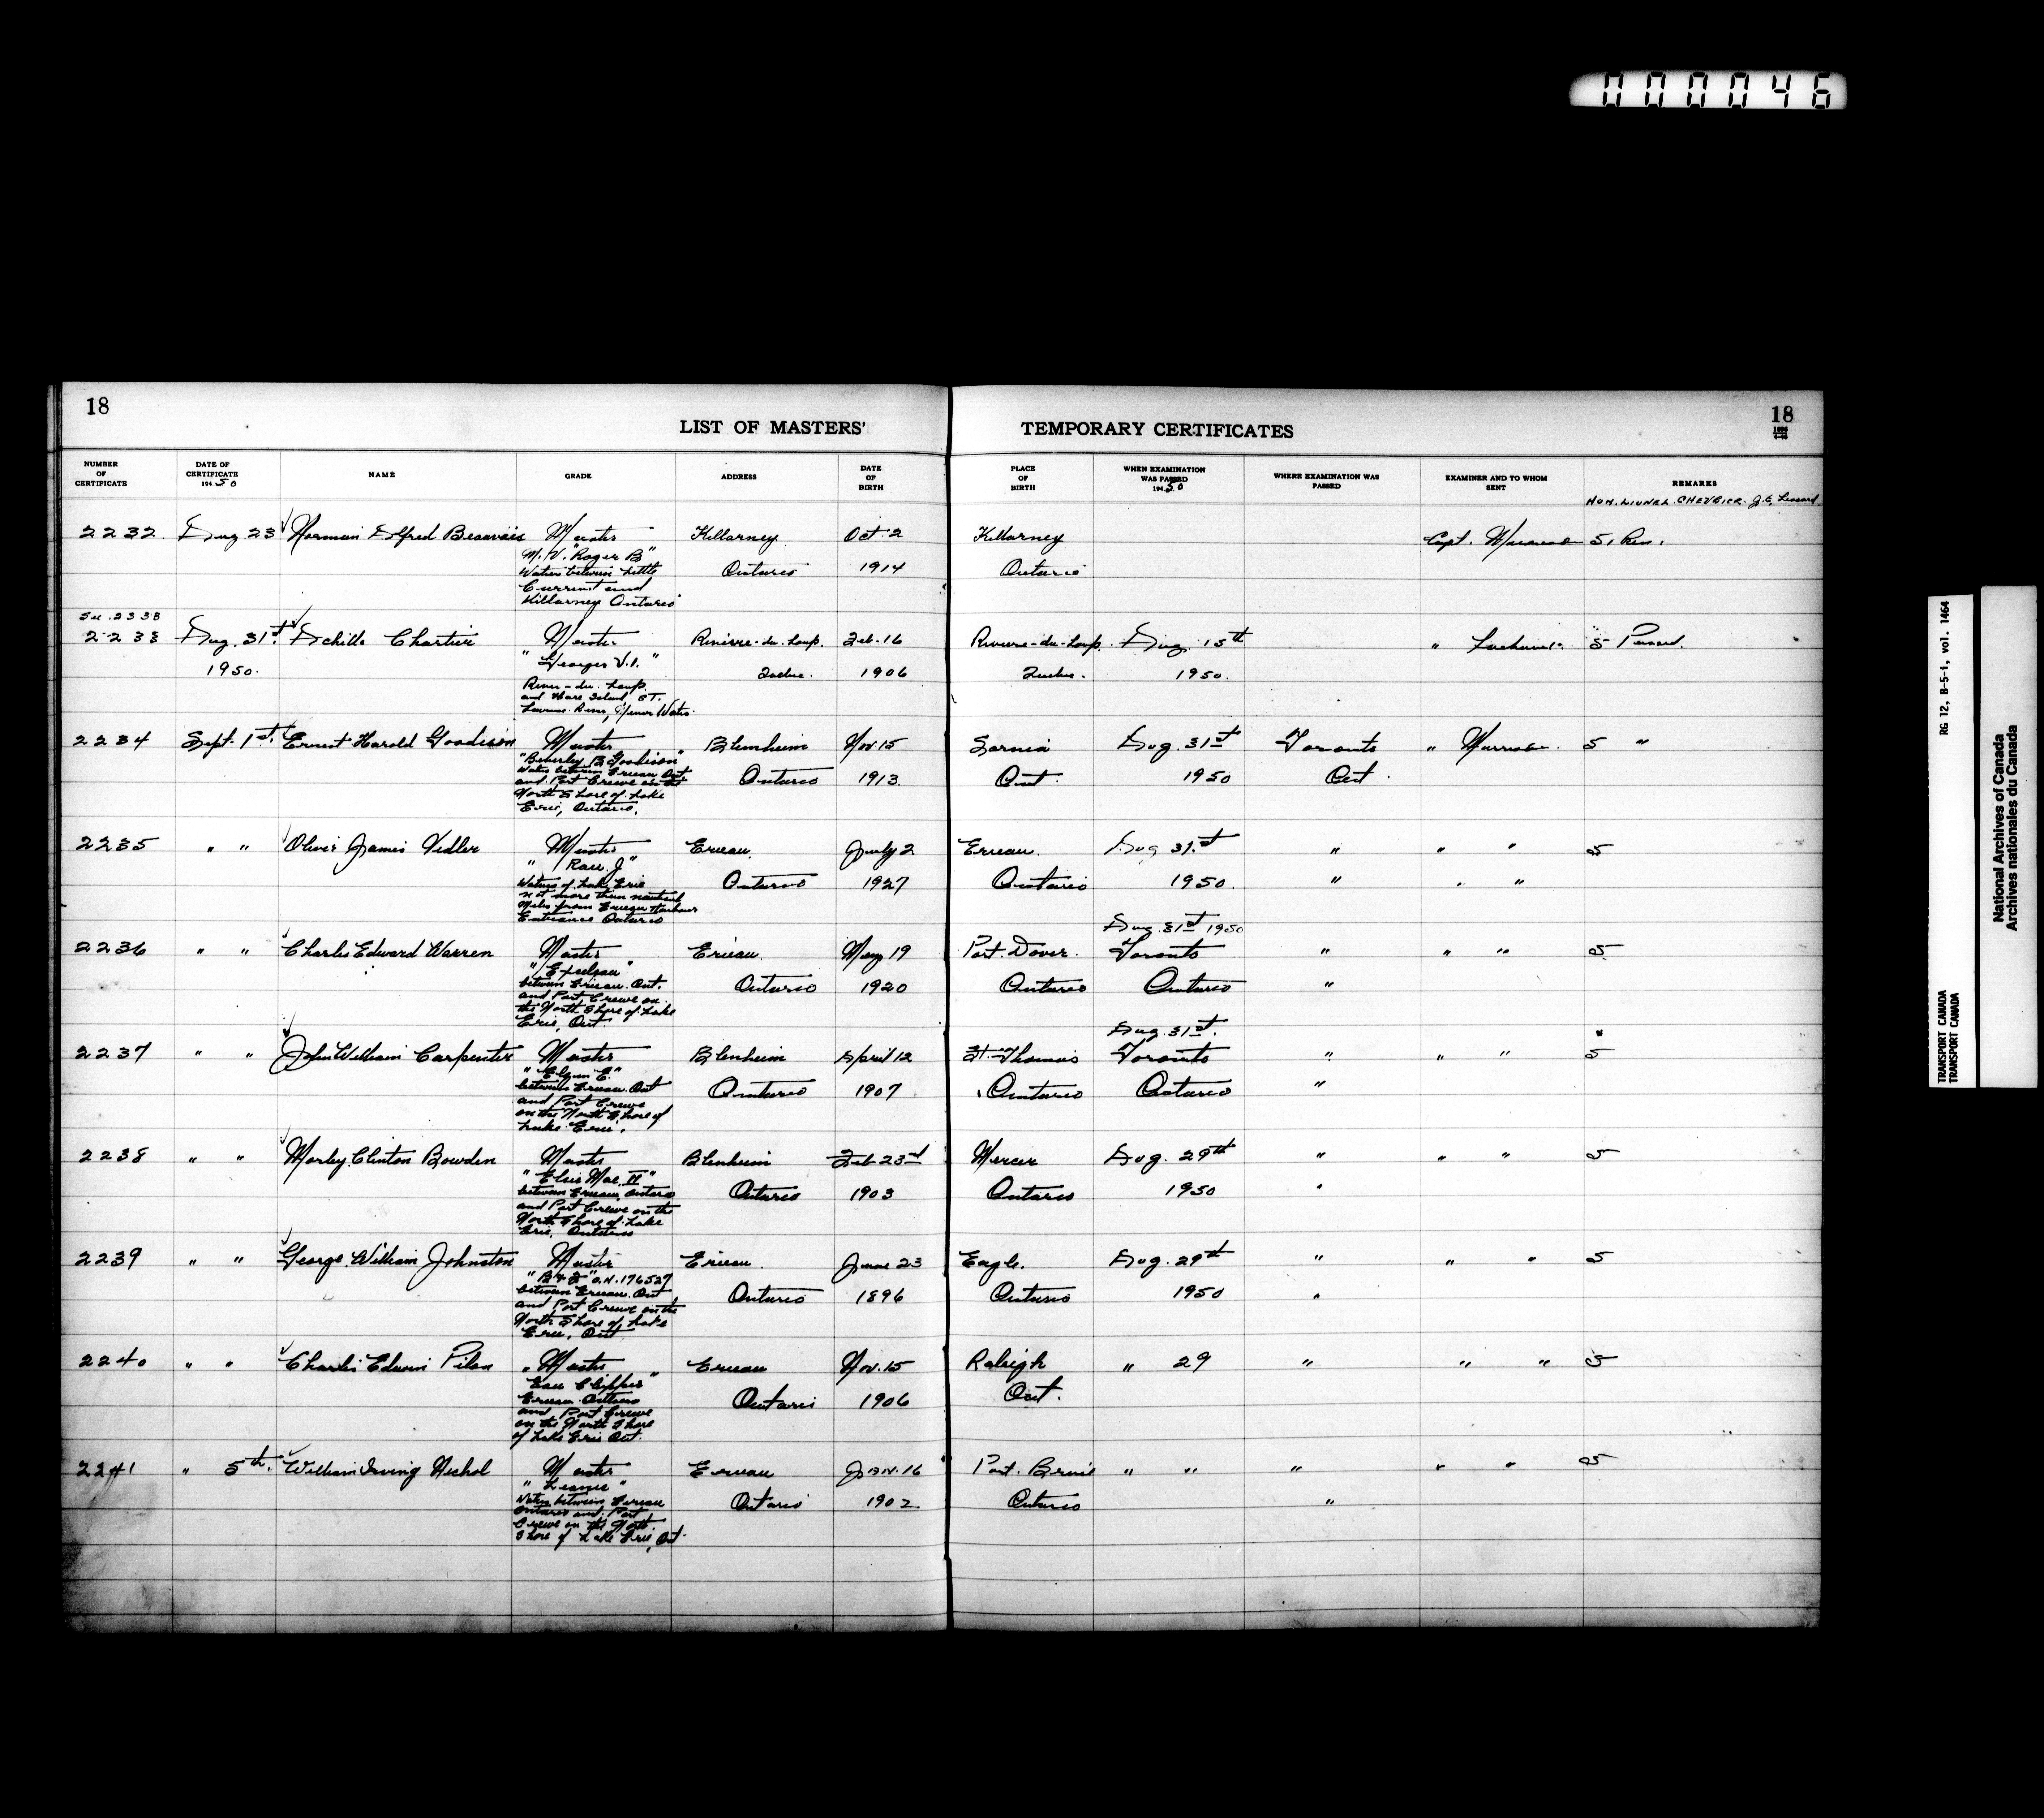 000046
18
LIST OF MASTERS' TEMPORARY CERTIFICATES
18
NUMBER OF CERTIFICATE
DATE OF CERTIFICATE 194 50
NAME
GRADE
ADDRESS
DATE OF BIRTH
PLACE OF BIRTH
WHEN EXAMINATION WAS PASSED 194 50
WHERE EXAMINATION WAS PASSED
EXAMINER AND TO WHOM SENT
REMARKS
HON. LIONEL CHEVRIER. J.C. Lessard
2232 Aug 23 Norman Alfred Beauvais Master Killarney Oct. 2 Killarney Capt. 5.
M.V. "Roger B"
Waters between Little Ontario 1914 Ontario
Current and
Killarney Ontario
See 2338
2233 Aug. 31st Achille Chartier Master Riviere-du-Loup. Feb-16 Riviere-du-Loup. Aug. 15th " 5
1950. "Georges V.I." Quebec. 1906 Quebec. 1950.
River-du-Loup
and Hare Island ST.
Lawrence River, Minor Waters.
2234 Sept. 1st. Ernest Harold Goodison Master Blenheim Nov. 15 Sarnia Aug. 31st Toronto " 5 "
"Beverley B Goodison"
Waters between Erieau Ont. Ontario 1913. Ont 1950 Ont.
and Port Crewe on the
North Shore of Lake
Erie, Ontario.
2235 " " Oliver James Vidler Master Erieau. July 2 Erieau. Aug 31.st " " " 5
" Rau. J"
Waters of Lake Erie Ontario 1927 Ontario 1950. " " "
not more than nautical
miles from Erieau Harbour
Entrance Ontario
Aug. 31st 1950
2236 " " Charles Edward Warren Master Erieau. May 19 Port Dover. Toronto " " " 5
between Erieau. Ont. Ontario 1920 Ontario Ontario "
and Port Crewe on
the North Shore of Lake
Erie, Ont.
Aug. 31st. "
2237 " " John William Carpenter Master Blenheim April 12 St. Thomas Toronto " " " 5
"Elgin E."
between Erieau. Ont Ontario 1907 Ontario Ontario "
and Port Crewe
on the North Shore of
Lake Erie.
2238 " " Morley Clinton Bowden Master Blenheim Feb 23rd Mercer Aug. 29th " " " 5
"Elsie Mae II"
between Erieau, Ontario Ontario 1903 Ontario 1950 "
and Port Crewe on the
North Shore of Lake
Erie, Ontario
2239 " " George William Johnston Master Erieau. June 23 Eagle. Aug. 29th " " " 5
O.N. 176527
between Erieau. Ont Ontario 1896 Ontario 1950 "
and Port Crewe on the
North Shore of Lake
Erie, Ont
2240 " " Charles Edwin Pilon Master Erieau Nov. 15 Raleigh " 29 " " " 5
"Eau Clipper"
Erieau Ontario Ontario 1906 Ont.
and Port Crewe
on the North Shore
of Lake Erie Ont.
2241 " 5th. William Irving Nichol Master Erieau Jan. 16 Port. Bruce " " " " " 5
Waters between Erieau Ontario 1902 Ontario "
Ontario and Port
Crewe on the North
Shore of Lake Erie, Ont.
RG 12, B-5-i, vol. 1464
TRANSPORT CANADA
TRANSPORT CANADA
National Archives of Canada
Archives nationales du Canada